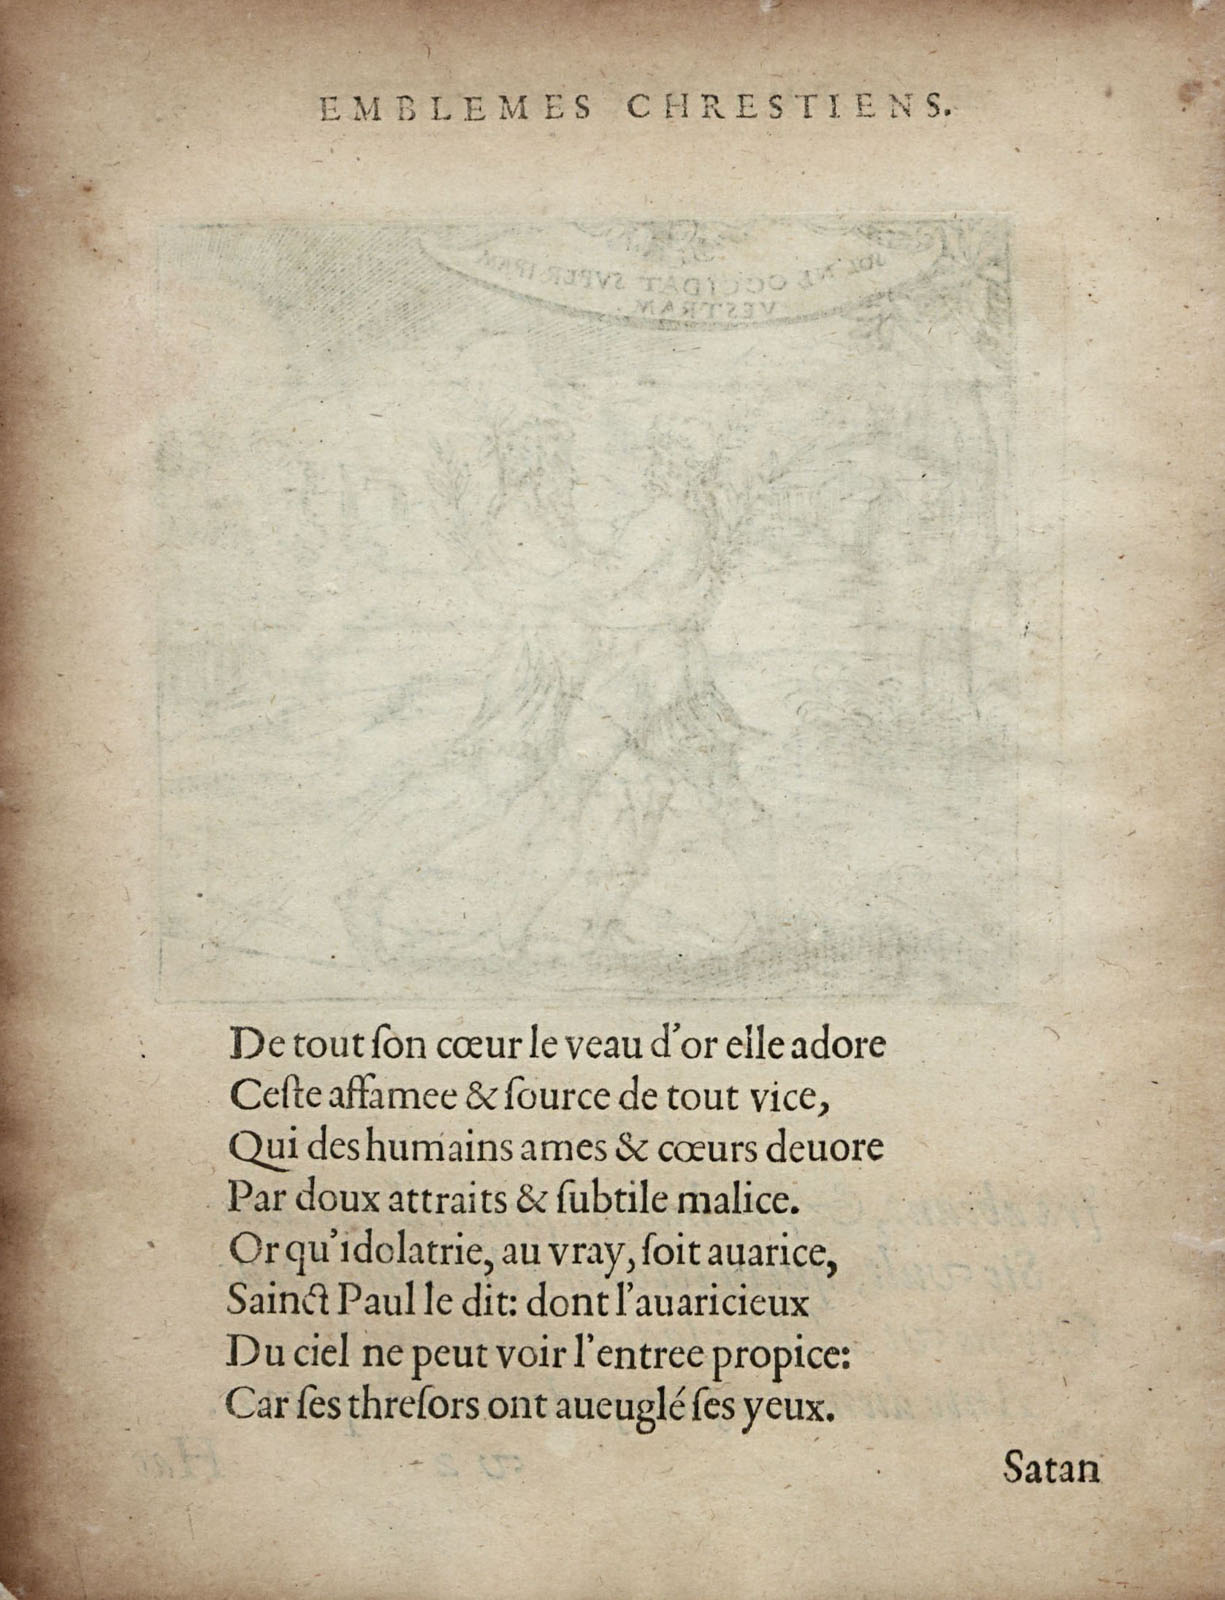 EMBLEMES CHRESTIENS.
SOL NE OCCIDAT SVPER IRAM
VESTRAM.
De tout ſon cœur le veau d'or elle adore
Ceſte affamee & ſource de tout vice,
Qui des humains ames & cœurs deuore
Par doux attraits & ſubtile malice.
Or qu'idolatrie, au vray, ſoit auarice,
Sainct Paul le dit: dont l'auaricieux
Du ciel ne peut voir l'entree propice:
Car ſes threſors ont aueuglé ſes yeux.
Satan